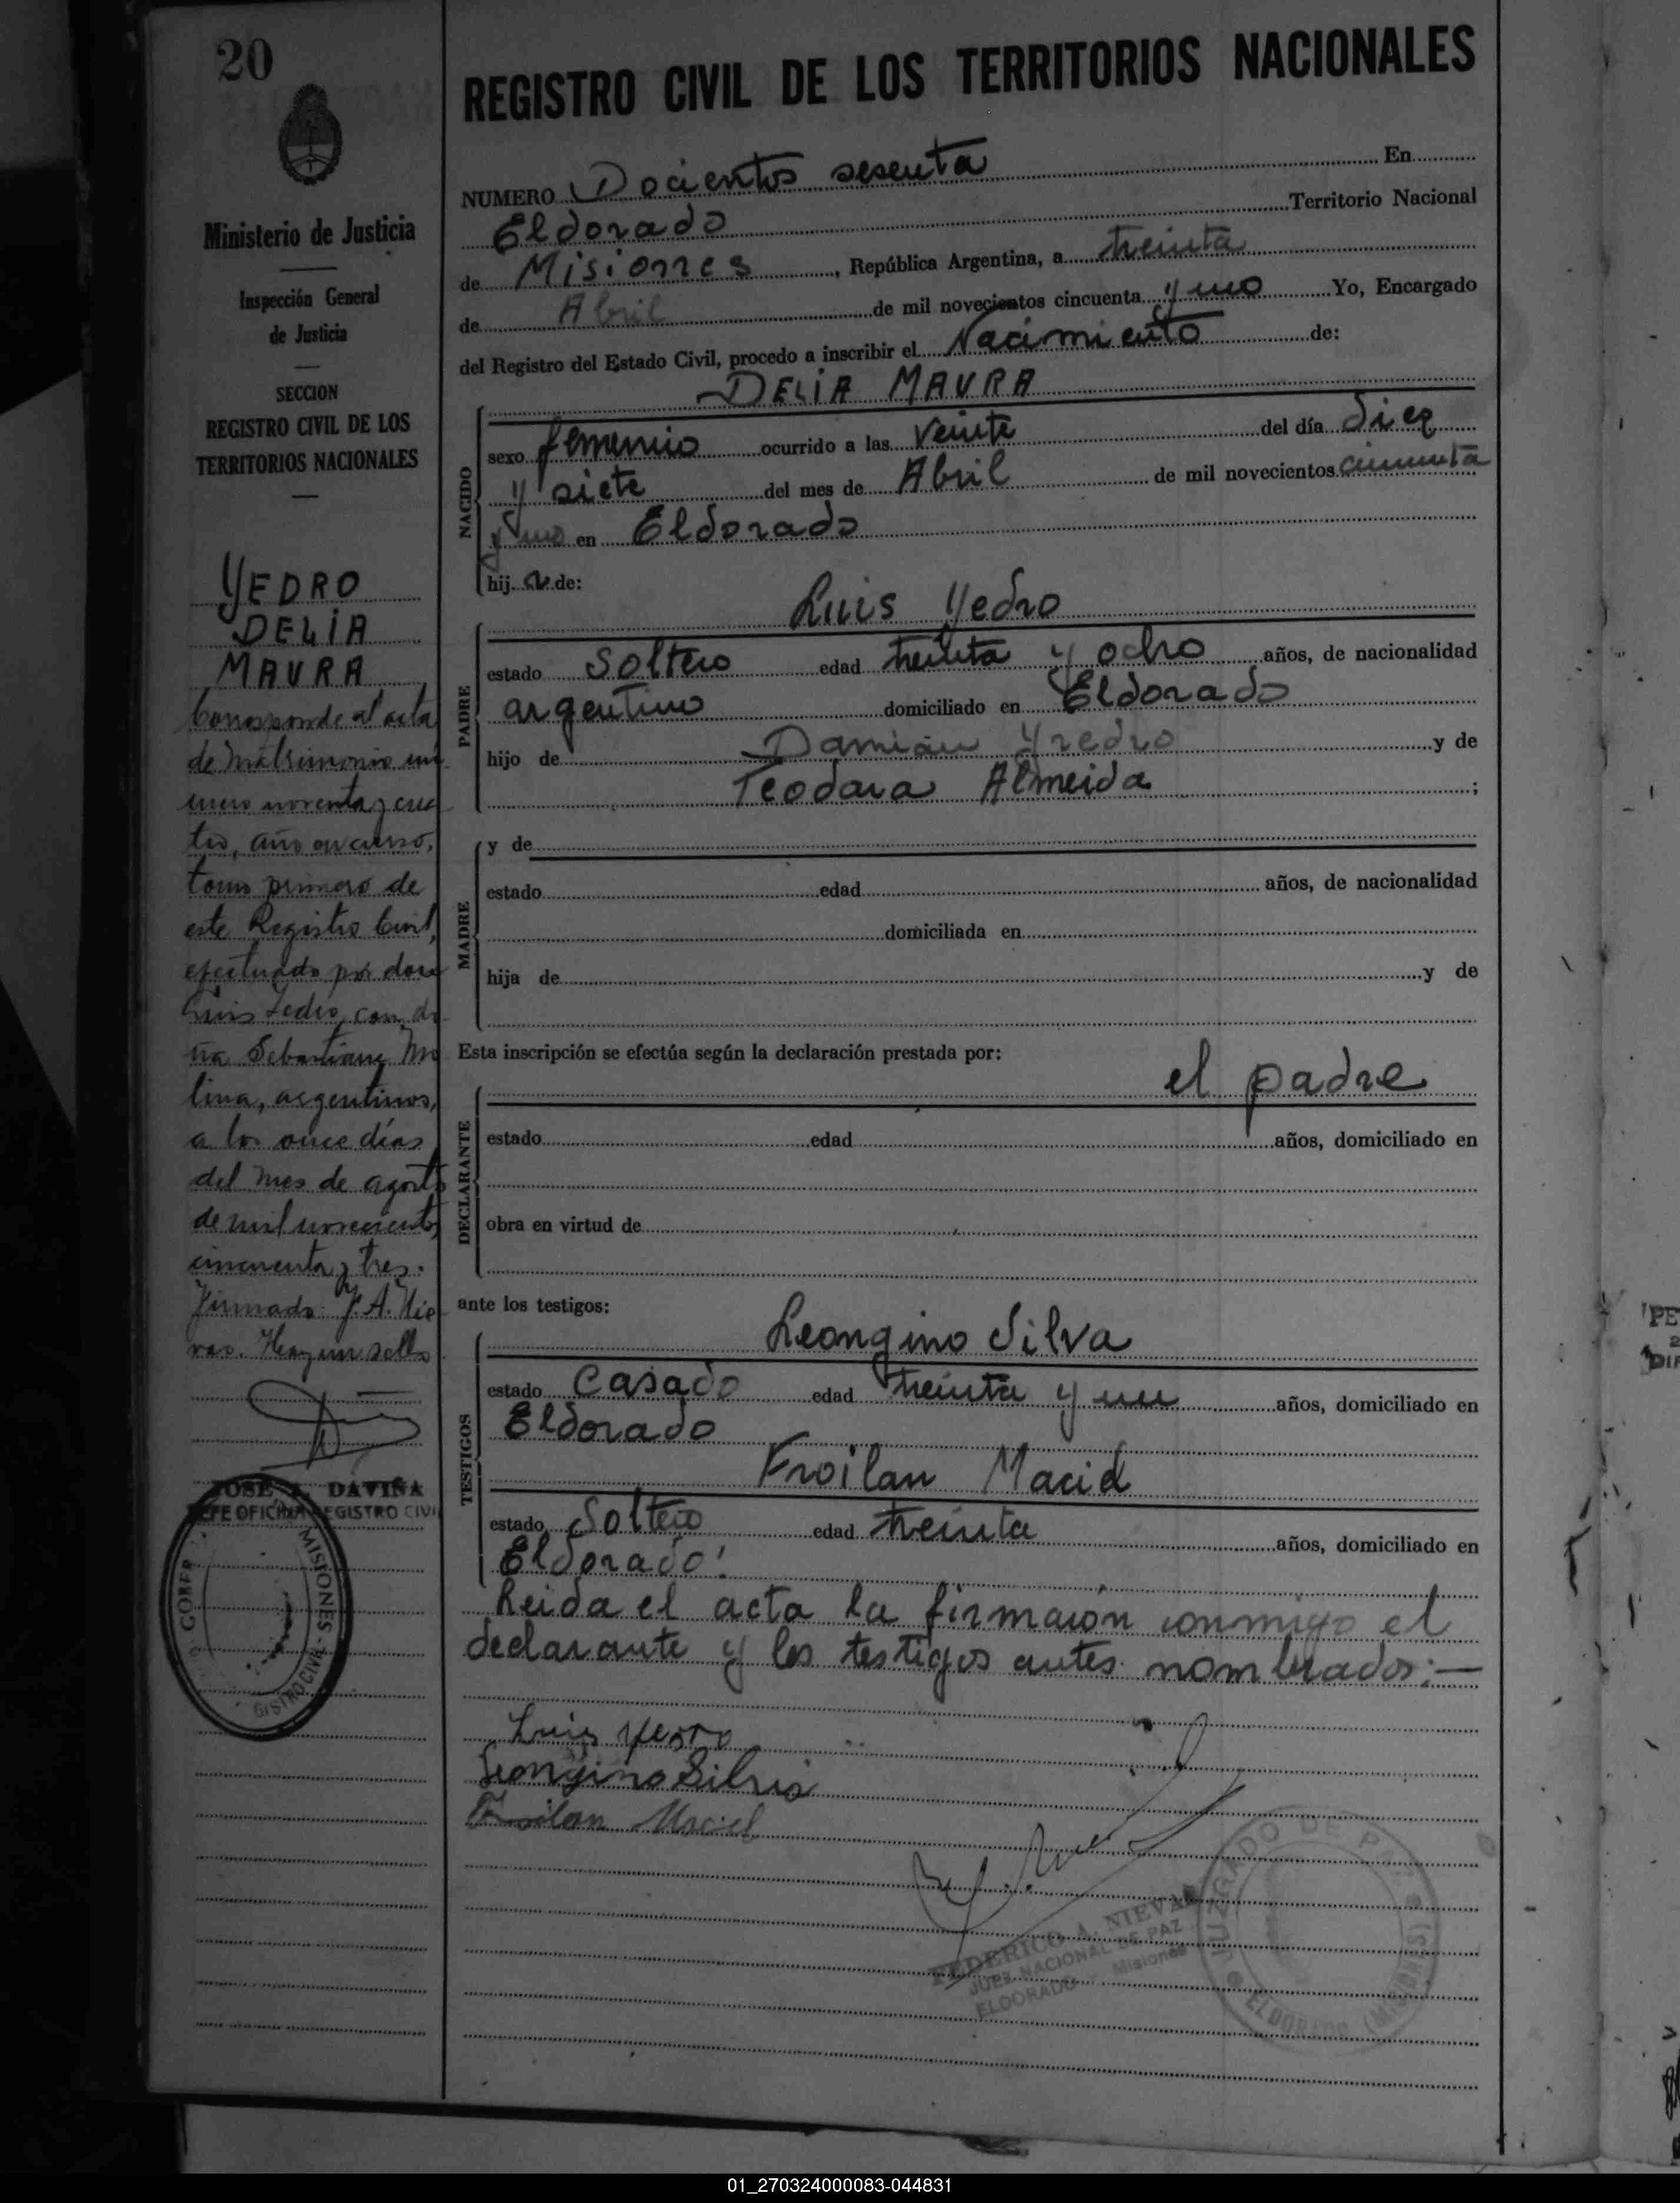 20
Ministerio de Justicia
Inspección General
de Justicia
SECCION
REGISTRO CIVIL DE LOS
TERRITORIOS NACIONALES
YEDRO
DELIA
MAURA
Corresponde al acta
de matrimonio nú
mero noventa y cua
tro, año en curso,
tomo primero de
este Registro Civil,
efectuado por don
Luis Yedro, con do
ña Sebastiana Mo
lina, argentinos,
a los once días
del mes de agosto
de mil novecientos
cincuenta y tres.
Firmado: F. A. Nie
vas. Hay un sello
JOSE DAVIÑA
JEFE OFICINA REGISTRO CIVIL
MISIONES
REGISTRO CIVIL DE LOS TERRITORIOS NACIONALES
NUMERO Docientos sesenta En
Eldorado Territorio Nacional
de Misiones, República Argentina, a treinta
de Abril de mil novecientos cincuenta y uno Yo, Encargado
del Registro del Estado Civil, procedo a inscribir el Nacimiento de:
DELIA MAURA
NACIDO
sexo femenino ocurrido a las veinte del día diez
y siete del mes de Abril de mil novecientos cincuenta
y uno en Eldorado
hij a de:
Luis Yedro
PADRE
estado Soltero edad treinta y ocho años, de nacionalidad
argentino domiciliado en Eldorado
hijo de Damián Yredro y de
Teodora Almeida ;
MADRE
y de
estado edad años, de nacionalidad
domiciliada en
hija de y de
Esta inscripción se efectúa según la declaración prestada por:
el padre
DECLARANTE
estado edad años, domiciliado en
obra en virtud de
ante los testigos:
Leongino Silva
TESTIGOS
estado Casado edad treinta y un años, domiciliado en
Eldorado
Froilan Maciel
estado Soltero edad treinta años, domiciliado en
Eldorado!
Leida el acta la firmaron conmigo el
declarante y los testigos antes nombrados:—
Luis Yedro
Leongino Silva
Froilan Maciel
FEDERICO A. NIEVAS
JUEZ NACIONAL DE PAZ
ELDORADO - Misiones
JUZGADO DE PAZ
ELDORADO (MISIONES)
01_270324000083-044831